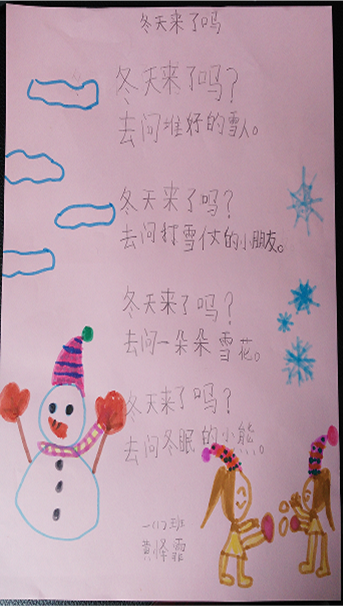 冬天来了吗
冬天来了吗?
去问堆好的雪人。
冬天来了吗?
去问打雪仗的小朋友。
冬天来了吗?
去问一朵朵雪花。
冬天来了吗?
去问冬眠的小熊。
一(1)班